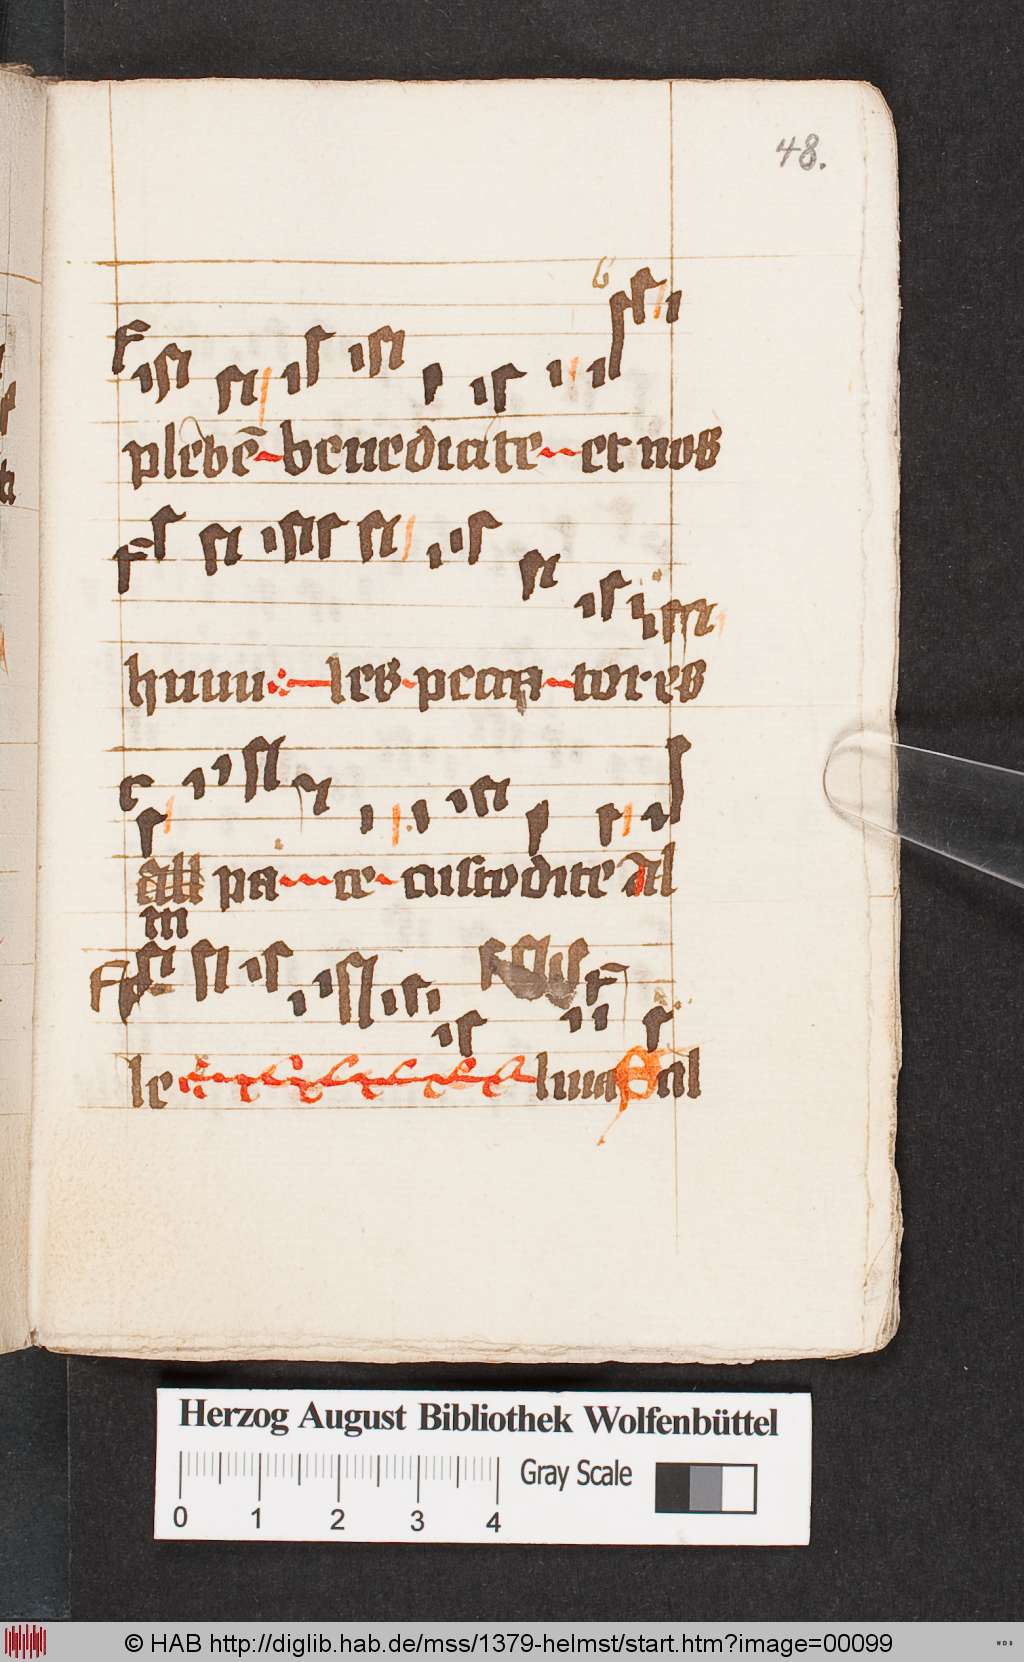 48.
G
F
plebē benedicite et nos
F
humiles peccatores
c
all pa ce custodite Al
in
F F
le luia Sal
Herzog August Bibliothek Wolfenbüttel
Gray Scale
0 1 2 3 4
© HAB http://diglib.hab.de/mss/1379-helmst/start.htm?image=00099